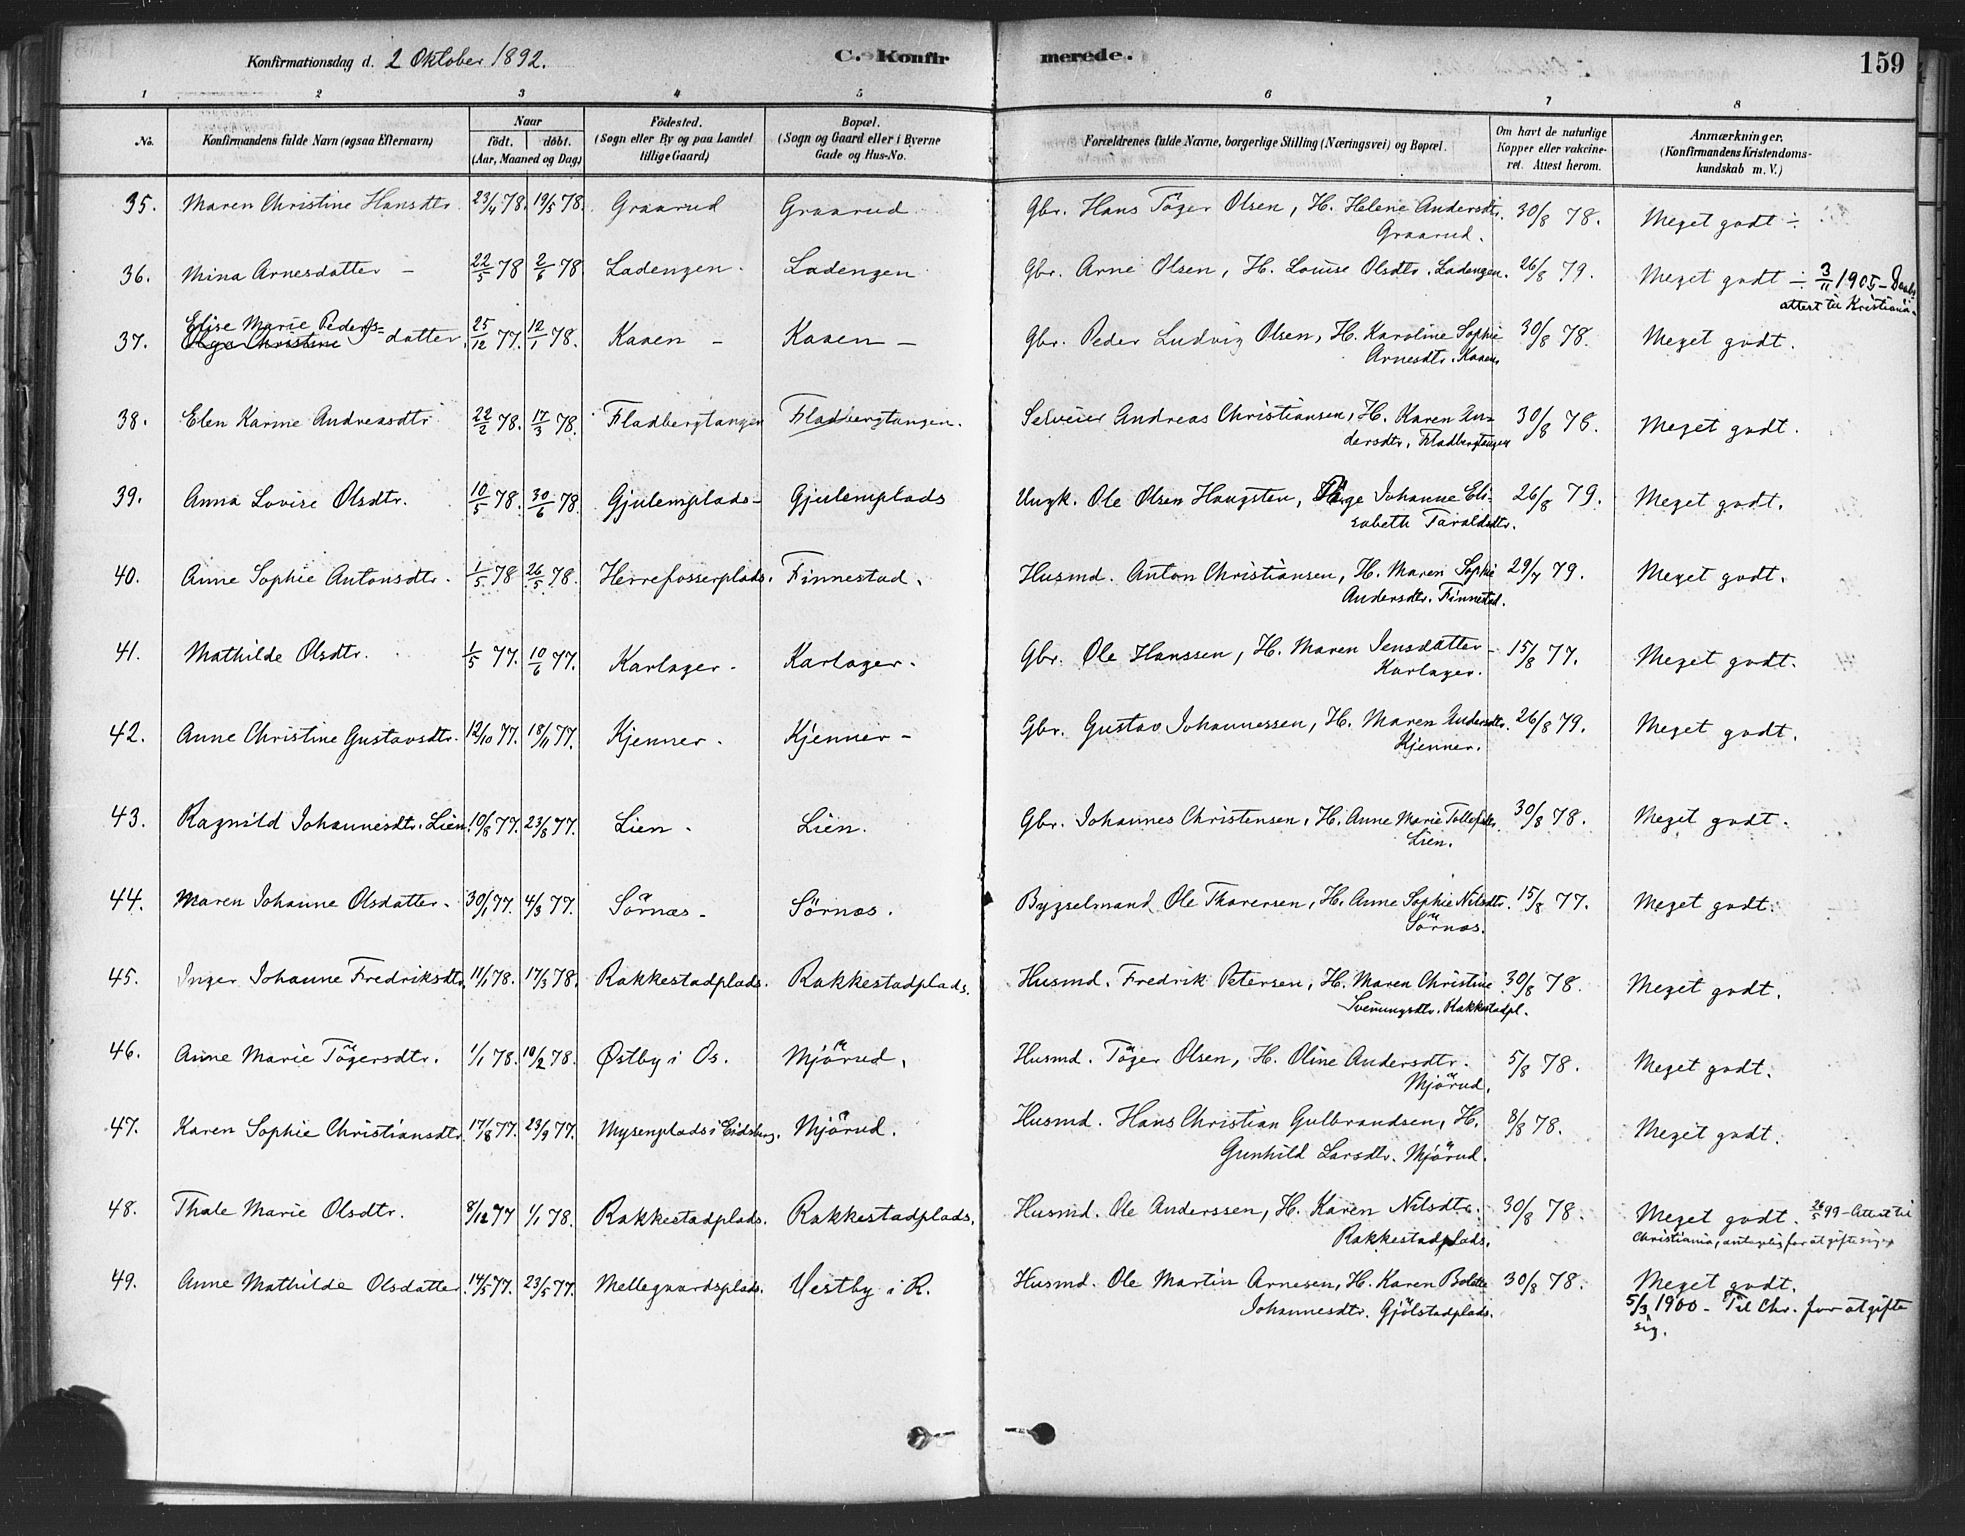 Konfirmationsdag d. 2 Oktober 1892. C. Konfirmerede. 159
1 2 3 4 5 6 7 8
No. Konfirmandens fulde Navn (ogsaa Efternavn) Naar født. døbt. (Aar, Maaned og Dag) Fødested. (Sogn eller By og paa Landet tillige Gaard) Bopæl. (Sogn og Gaard eller i Byerne Gade og Hus-No. Forældrenes fulde Navne, borgerlige Stilling (Næringsvei) og Bopæl. Om havt de naturlige Kopper eller vakcineret. Attest herom. Anmærkninger. (Konfirmandens Kristendomskundskab m. V.)
35. Maren Christine Hansdtr. 23/4 78. 19/5 78. Graarud Graarud Gbr. Hans Töger Olsen, H. Helene Andersdtr. 30/8 78. Meget godt ÷
Graarud.
36. Mina Arnesdatter – 22/5 78 2/6 78. Ladengen. Ladengen Gbr. Arne Olsen, H. Louise Olsdtr. Ladengen. 26/8 79. Meget godt ÷ 3/11 1905 – Daabs
attest til Kristiania.
37. Elise Marie Peders=
Olga Christine datter. 25/12 77. 12/1 78. Kaaen – Kaaen – Gbr. Peder Ludvig Olsen, H. Karoline Sophie 30/8 78. Meget godt.
Arnesdtr. Kaaen
38. Elen Karine Andreasdtr 22/2 78. 17/3 78. Fladbergtangen Fladbergtangen. Selveier Andreas Christiansen, H. Karen An- 30/8 78. Meget godt.
dersdtr, Fladbergtangen
39. Anna Lovise Olsdtr. 10/5 78. 30/6 78. Gjulemplads– Gjulemplads Ungk. Ole Olsen Haugsten, Pige Johanne Eli- 26/8 79. Meget godt.
sabeth Taraldsdtr.
40. Anne Sophie Antonsdtr. 1/5 78 26/5 78. Herrefosserplads. Finnestad. Husmd. Anton Christiansen, H. Maren Sophie 29/7 79. Meget godt.
Andersdtr. Finnestad.
41. Mathilde Olsdtr. 1/5 77. 10/6 77. Karlager. Karlager. Gbr. Ole Hanssen, H. Maren Jensdatter – 15/8 77. Meget godt.
Karlager.
42. Anne Christine Gustavsdtr. 12/10 77. 18/11 77. Kjenner. Kjenner – Gbr. Gustav Johannessen, H. Maren Andersdtr. 26/8 79. Meget godt.
Kjenner.
43. Ragnild Johannesdtr. Lien. 10/8 77. 23/8 77. Lien. Lien. Gbr. Johannes Christensen, H. Anne Marie Tollefsdtr. 30/8 78. Meget godt.
Lien.
44. Maren Johanne Olsdatter. 30/1 77. 4/3 77. Sörnæs – Sörnæs. Bygselmand Ole Thoresen, H. Anne Sophie Nilsdtr. 15/8 77. Meget godt.
Sörnæs.
45. Inger Johanne Fredriksdtr. 11/1 78. 17/3 78. Rakkestadplads. Rakkestadplads. Husmd. Fredrik Petersen, H. Maren Christine 30/8 78. Meget godt.
Svenungsdtr. Rakkestadpl.
46. Anne Marie Tögersdtr. 1/1 78. 10/2 78. Østby i Os. Mjörud. Husmd. Töger Olsen, H. Oline Andersdtr. 5/8 78. Meget godt.
Mjörud.
47. Karen Sophie Christiansdtr. 17/8 77. 23/9 77. Mysenplads i Eidsberg. Mjörud. Husmd. Hans Christian Gulbrandsen, H. 8/8 78. Meget godt.
Gunhild Larsdtr. Mjörud.
48. Thale Marie Olsdtr. 8/12 77 1/1 78. Rakkestadplads. Rakkestadplads. Husmd. Ole Anderssen, H. Karen Nilsdtr. 30/8 78. Meget godt. 26/5 99 – Attest til
Rakkestadplads. Christiania, antagelig for at gifte sig
49. Anne Mathilde Olsdatter. 14/5 77. 23/5 77. Mellegaardsplads. Vestby i R. Husmd. Ole Martin Arnesen, H. Karen Bolette 30/8 78. Meget godt.
Johannesdtr. Gjölstadplads. 5/3 1900 – Til Chr. for at gifte
sig.